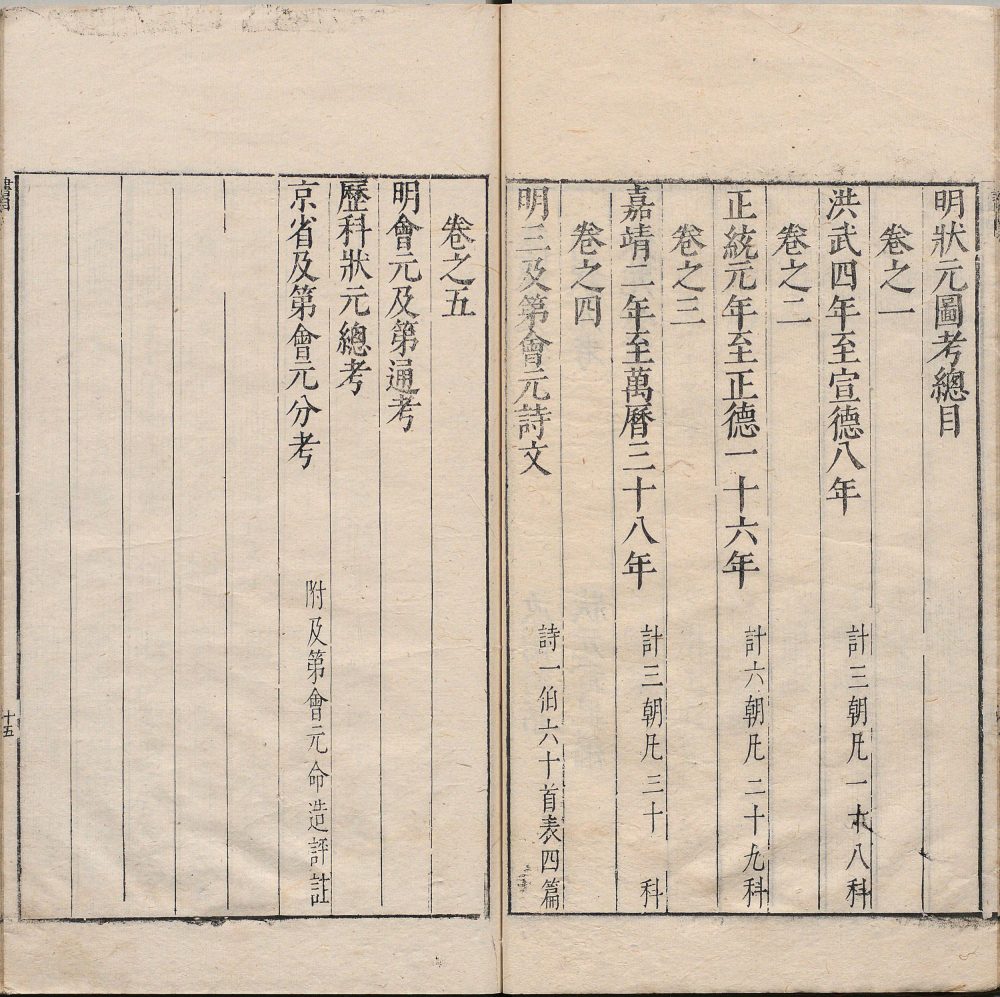 明狀元圖考總目
卷之一
洪武四年至宣德八年 計三朝凡一十八科
卷之二
正統元年至正德一十六年 計六朝凡二十九科
卷之三
嘉靖二年至萬曆三十八年 計三朝凡三十 科
卷之四
明三及第會元詩文 詩一伯六十首表四篇
卷之五
明會元及第通考
歷科狀元總考
京省及第會元分考 附及第會元命造評註
十五